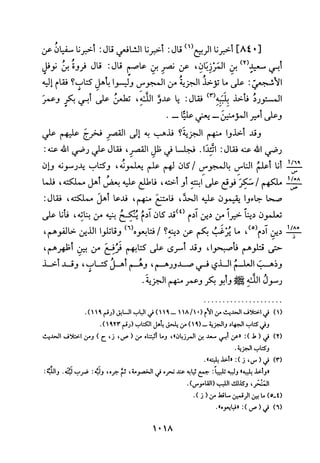 [٨٤٠] أخبرنا الربيع(١) قال: أخبرنا الشافعي قال: أخبرنا سفيانُ عن
أبـي سعيدٍ(٢) بنِ المَرْزِبَانِ، عن نصرِ بنِ عاصمٍ قال: قال فروةُ بنُ نوفلٍ
الأشجعيُّ: على ما تؤخذُ الجزيةُ من المجوسِ وليسوا بأهلِ كتابٍ؟ فقام إليه
المستوردُ فأخذ بِلَبَبِهِ(٣) فقال: يا عدوَّ اللَّـهِ، تطعنُ على أبـي بكرٍ وعمرَ
وعلى أميرِ المؤمنينَ ـــ يعني عليًّا ـــ .
وقد أخذوا منهم الجزيةَ؟ فذهب به إلى القصرِ فخرجَ عليهم علي
رضي الله عنه فقال: اتَّئِدَا. فجلسا في ظلِ القصرِ، فقال علي رضي الله عنه:
أنا أعلمُ الناسِ بالمجوسِ / كان لهم علم يعلمونَه، وكتاب يدرسونه وإن
ملكهم / سَكِرَ فوقع على ابنتِهِ أو أختِه، فاطلع عليه بعضُ أهل مملكته، فلما
صحا جاءوا يقيمون عليه الحدَّ، فامتنعَ منهم، فدعا أهلَ مملكته، فقال:
تعلمون ديناً خيراً من دين آدم (٤)قد كان آدمُ يُنكِـحُ بنيه من بناتِه، فأنا على
دينِ آدم(٥)، ما يُرْغَبُ بكم عن دينِه؟ / فتابعوه(٦) وقاتلوا الذين خالفوهم،
حتى قتلوهم فأصبحوا، وقد أسرى على كتابهم فَرُفِـعَ من بينِ أظهرهم،
وذهـبَ العلـمُ الـذي فـي صـدورهـم، وهُـم أهـلُ كتـابٍ، وقـد أخـذ
رسولُ اللَّـهِ ﷺ وأبو بكر وعمر منهم الجزيةَ.
١/٦٩
س
١/٥٨
ص
١/٨٥
ز
(١) في اختلاف الحديث من الأم (١٠/ ١١٨ ـــ ١١٩) في الباب السابق (رقم ١١٩).
وفي كتاب الجهاد والجزية ـــ (١٠) من يلحق بأهل الكتاب (رقم ١٩٢٣).
(٢) في ( ط ): «عن أبـي سعد بن المرزبان»، وما أثبتناه من ( ص، ز، ح ) ومن اختلاف الحديث
وكتاب الجزية.
(٣) في ( س، ز ): «أخذ بلبته».
«وأخذ بلببه» ولببه تلبيباً: جمع ثيابه عند نحره في الخصومة، ثمَّ جره، ولَبَّه: ضرب لَبَّتَه. واللَّبَّة:
المَنْحَر، وكذلك اللبب (القاموس).
(٤ـ٥) ما بين الرقمين ساقط من ( ز ).
(٦) في ( ص ): «فبايعوه».
١٠١٨